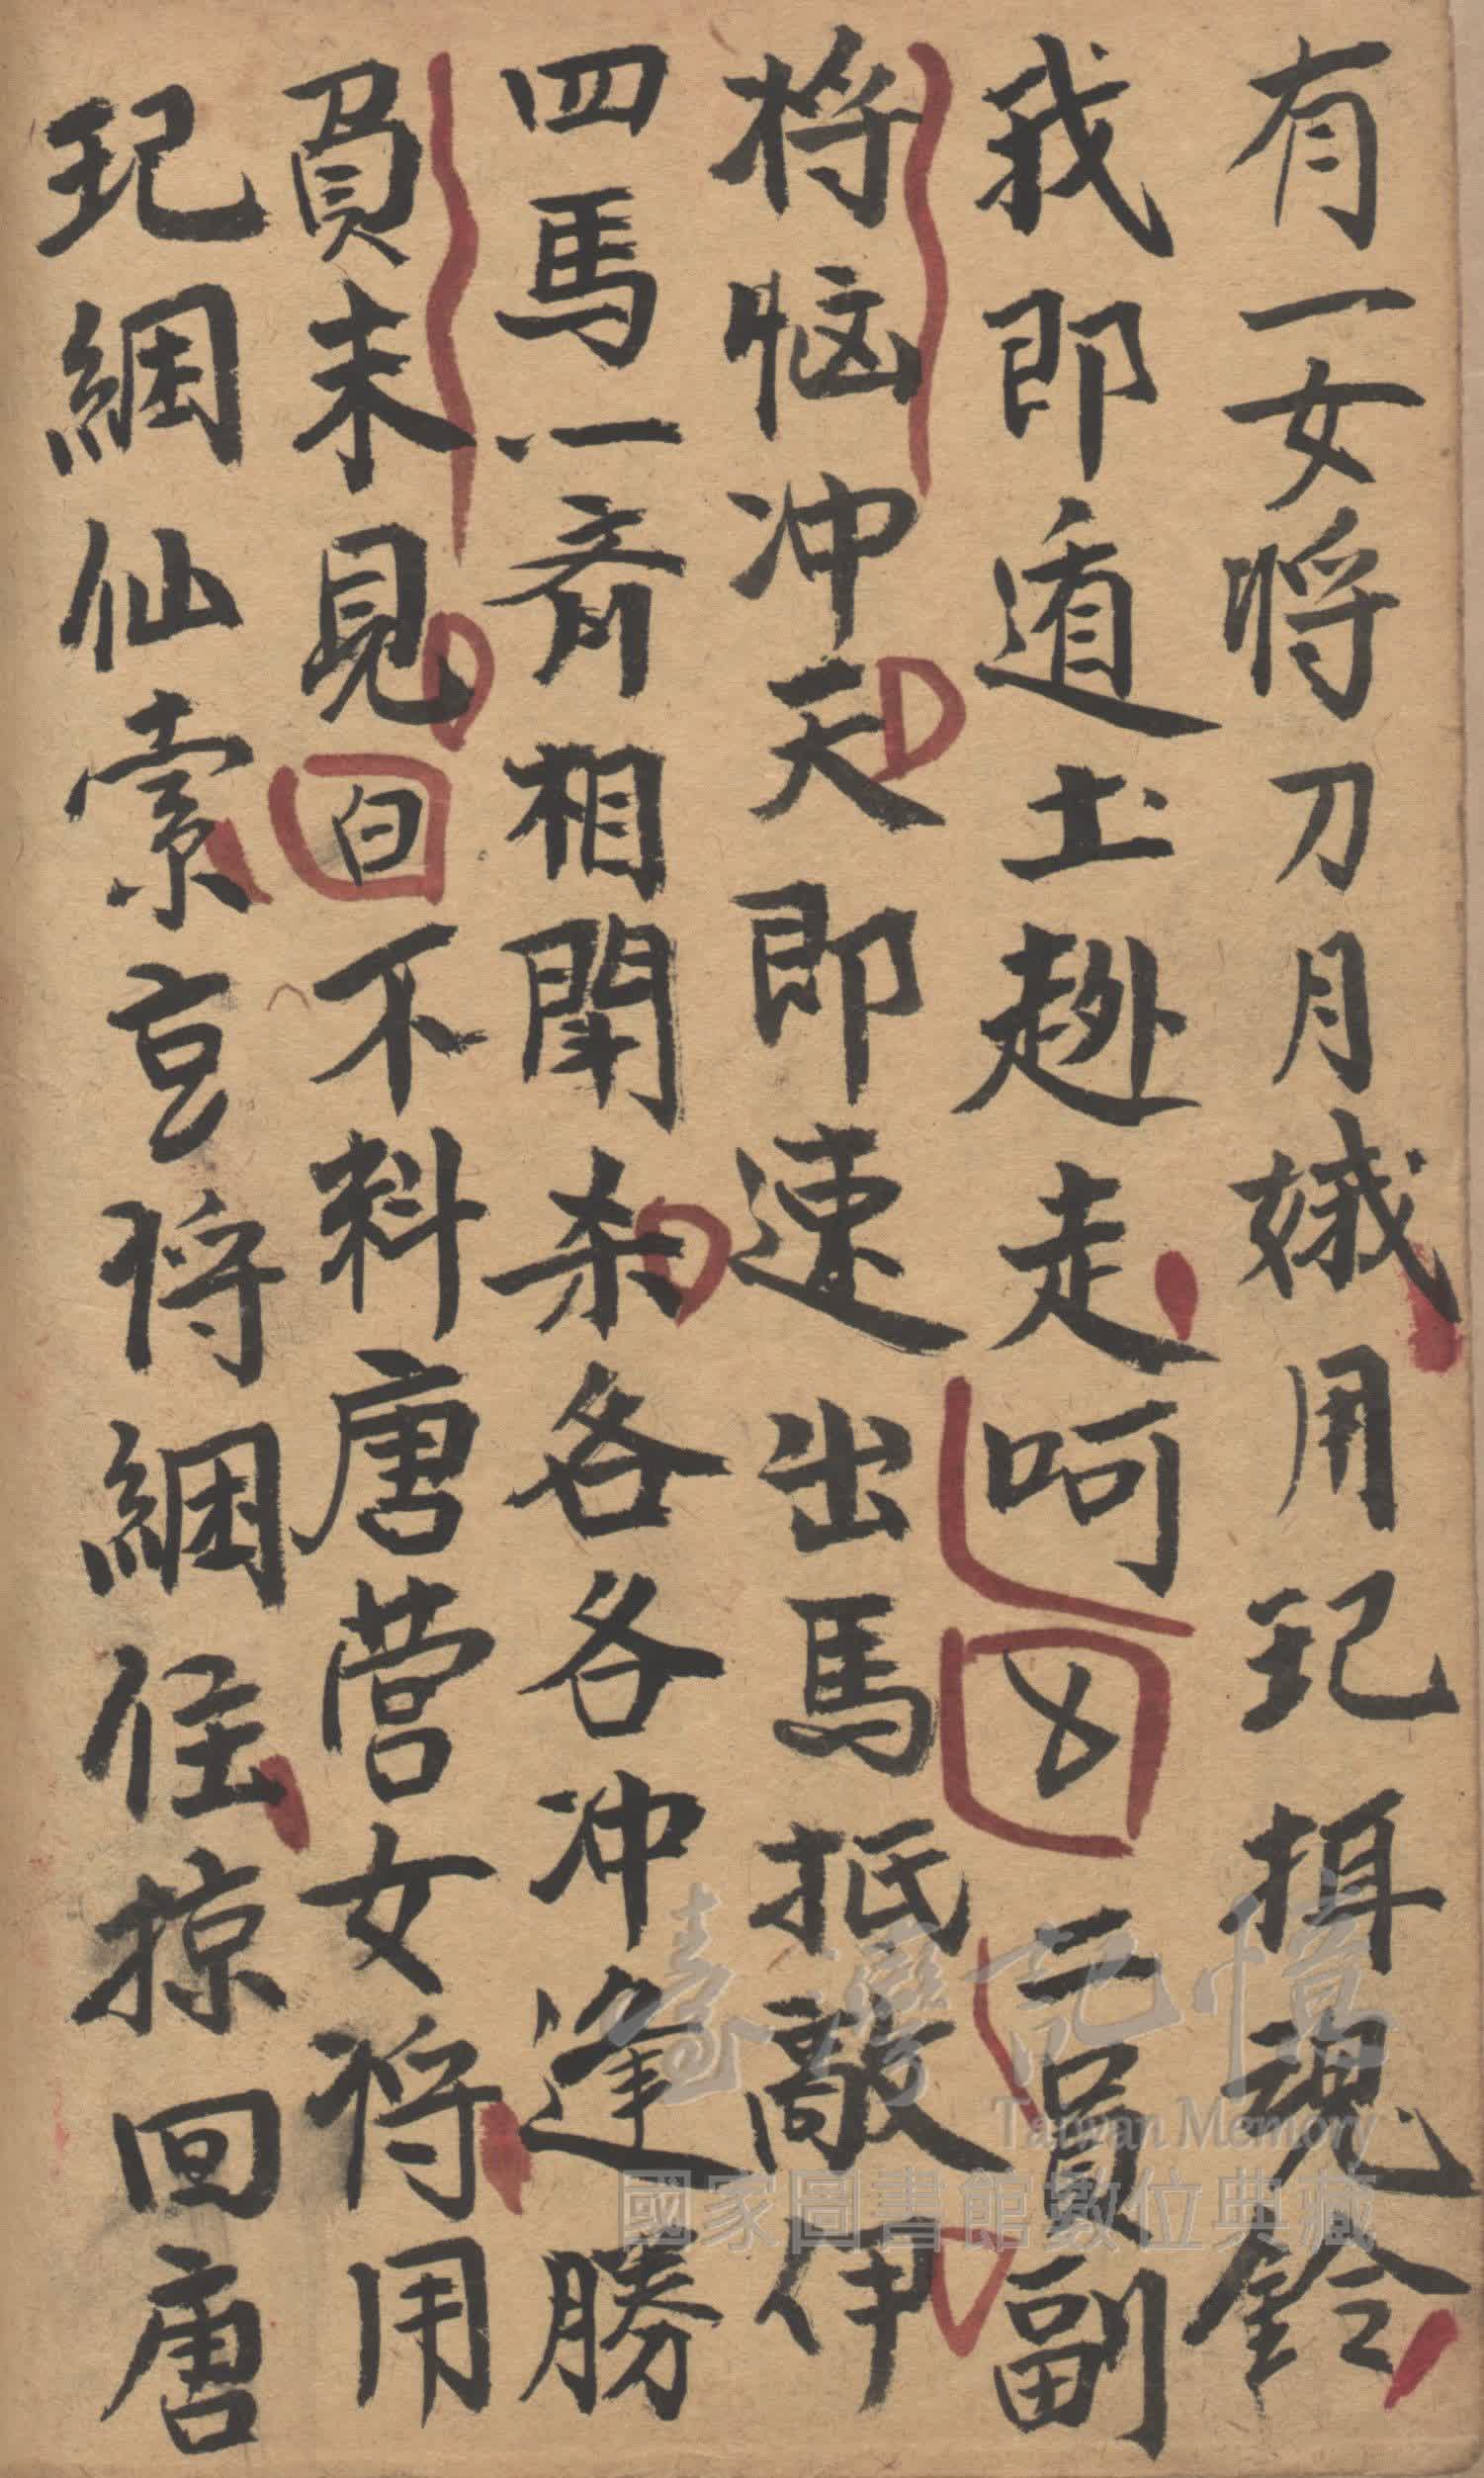 有一女将刀月娥用玘挕魂鈴
我即遁土走呵二員副
将恼冲天即速出馬抵敵伊
四馬一齊相閗杀各各冲逢勝
員未見白不料唐营女将用
玘綑仙索将綑住掠回唐
臺灣記憶
Taiwan Memory
國家圖書館數位典藏